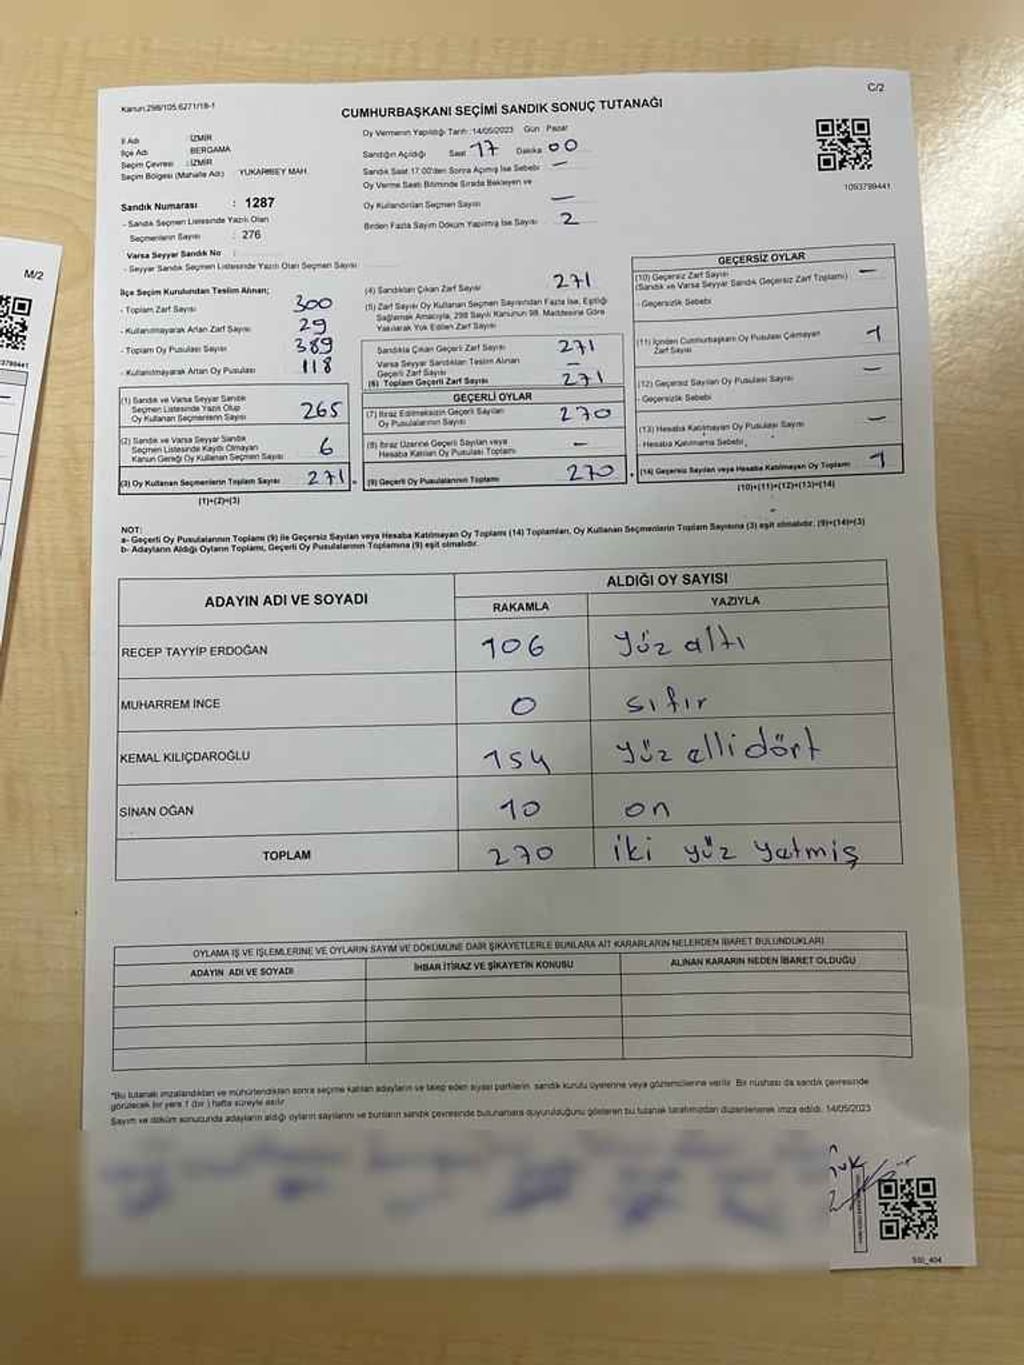 C/2
Kanun.298/105.6271/18-1
CUMHURBAŞKANI SEÇİMİ SANDIK SONUÇ TUTANAĞI
İl Adı : İZMİR
İlçe Adı : BERGAMA
Seçim Çevresi : İZMİR
Seçim Bölgesi (Mahalle Adı) YUKARIBEY MAH.
Sandık Numarası : 1287
- Sandık Seçmen Listesinde Yazılı Olan
Seçmenlerin Sayısı : 276
Varsa Seyyar Sandık No :
- Seyyar Sandık Seçmen Listesinde Yazılı Olan Seçmen Sayısı
Oy Vermenin Yapıldığı Tarih :14/05/2023 Gün : Pazar
Sandığın Açıldığı Saat 17 Dakika 00
Sandık Saat 17:00'den Sonra Açımış İse Sebebi —
Oy Verme Saati Bitiminde Sırada Bekleyen ve
Oy Kullandırılan Seçmen Sayısı —
Birden Fazla Sayım Döküm Yapılmış İse Sayısı 2
1093799441
M/2
İlçe Seçim Kurulundan Teslim Alınan;
- Toplam Zarf Sayısı 300
- Kullanılmayarak Artan Zarf Sayısı 29
- Toplam Oy Pusulası Sayısı 389
- Kullanılmayarak Artan Oy Pusulası 118
(1) Sandık ve Varsa Seyyar Sandık
Seçmen Listesinde Yazılı Olup
Oy Kullanan Seçmenlerin Sayısı 265
(2) Sandık ve Varsa Seyyar Sandık
Seçmen Listesinde Kayıtlı Olmayan
Kanun Gereği Oy Kullanan Seçmen Sayısı 6
(3) Oy Kullanan Seçmenlerin Toplam Sayısı 271
(1)+(2)=(3)
(4) Sandıktan Çıkan Zarf Sayısı 271
(5) Zarf Sayısı Oy Kullanan Seçmen Sayısından Fazla İse, Eşitliği
Sağlamak Amacıyla, 298 Sayılı Kanunun 98. Maddesine Göre
Yakılarak Yok Edilen Zarf Sayısı
Sandıkta Çıkan Geçerli Zarf Sayısı 271
Varsa Seyyar Sandıktan Teslim Alınan
Geçerli Zarf Sayısı —
(6) Toplam Geçerli Zarf Sayısı 271
GEÇERLİ OYLAR
(7) İtiraz Edilmeksizin Geçerli Sayılan
Oy Pusulası Sayısı 270
(8) İtiraz Üzerine Geçerli Sayılan veya
Hesaba Katılan Oy Pusulası Toplamı —
(9) Geçerli Oy Pusulalarının Toplamı 270
GEÇERSİZ OYLAR
(10) Geçersiz Zarf Sayısı —
(Sandık ve Varsa Seyyar Sandık Geçersiz Zarf Toplamı)
- Geçersizlik Sebebi
(11) İçinden Cumhurbaşkanı Oy Pusulası Çıkmayan
Zarf Sayısı 1
(12) Geçersiz Sayılan Oy Pusulası Sayısı —
- Geçersizlik Sebebi
(13) Hesaba Katılmayan Oy Pusulası Sayısı —
- Hesaba Katılmama Sebebi
(14) Geçersiz Sayılan veya Hesaba Katılmayan Oy Toplamı 1
(10)+(11)+(12)+(13)=(14)
NOT:
a- Geçerli Oy Pusulalarının Toplamı (9) ile Geçersiz Sayılan veya Hesaba Katılmayan Oy Toplamı (14) Toplamları, Oy Kullanan Seçmenlerin Toplam Sayısına (3) eşit olmalıdır. (9)+(14)=(3)
b- Adayların Aldığı Oyların Toplamı, Geçerli Oy Pusulalarının Toplamına (9) eşit olmalıdır.
ADAYIN ADI VE SOYADI ALDIĞI OY SAYISI
RAKAMLA YAZIYLA
RECEP TAYYİP ERDOĞAN 106 Yüz altı
MUHARREM İNCE 0 sıfır
KEMAL KILIÇDAROĞLU 154 yüz elli dört
SİNAN OĞAN 10 on
TOPLAM 270 iki yüz yetmiş
OYLAMA İŞ VE İŞLEMLERİNE VE OYLARIN SAYIM VE DÖKÜMÜNE DAİR ŞİKAYETLERLE BUNLARA AİT KARARLARIN NELERDEN İBARET BULUNDUKLARI
ADAYIN ADI VE SOYADI İHBAR İTİRAZ VE ŞİKAYETİN KONUSU ALINAN KARARIN NEDEN İBARET OLDUĞU
"Bu tutanak imzalandıktan ve mühürlendikten sonra seçime katılan adayların ve talep eden siyasi partilerin sandık kurulu üyelerine veya gözlemcilerine verilir. Bir nüshası da sandık çevresinde
görülecek bir yere 1 (bir ) hafta süreyle asılır
Sayım ve döküm sonucunda adayların aldığı oyların sayılarını ve bunların sandık çevresinde bulunanlara duyurulduğunu gösteren bu tutanak tarafımızdan düzenlenerek imza edildi. 14/05/2023